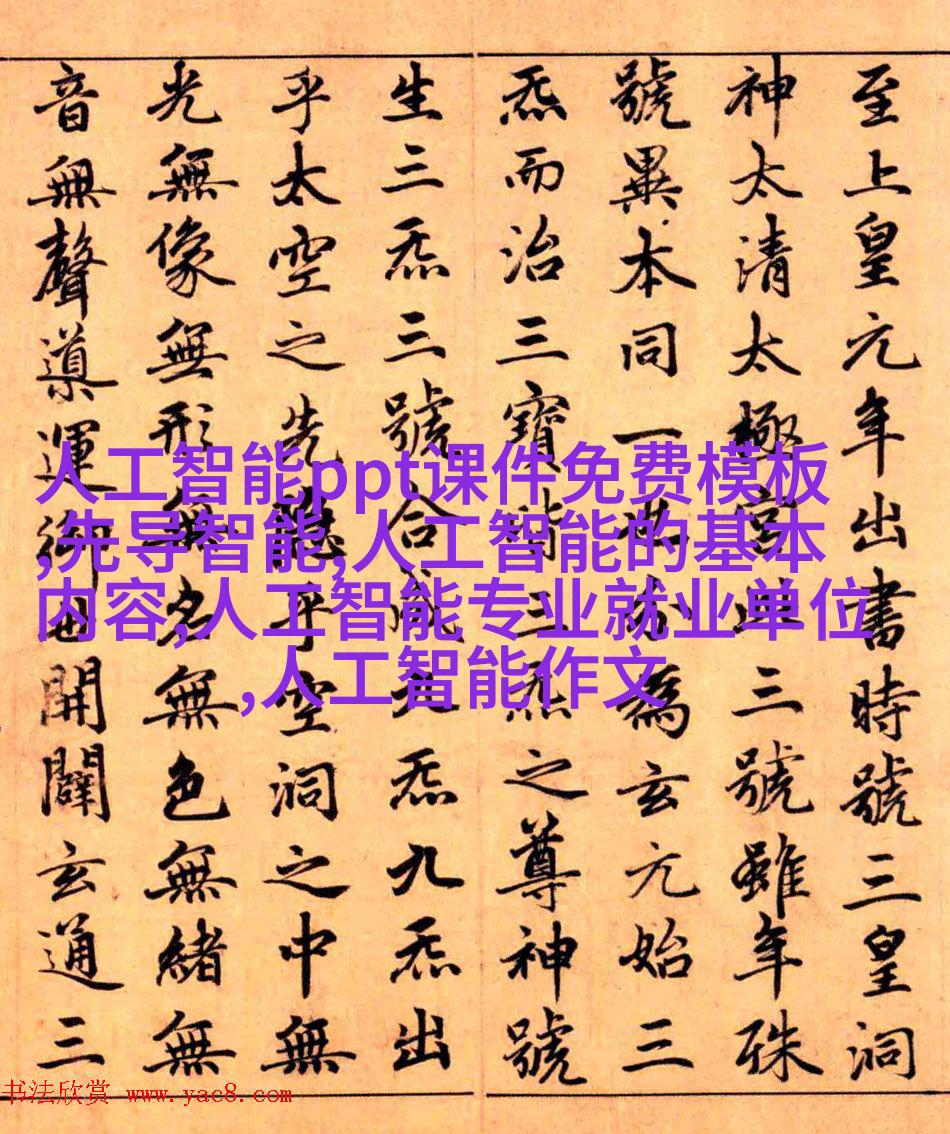 至上皇元年出書時號三皇洞
神太清太極宮此三號雖年殊
號異本同一也分為玄元始三
炁而治三寶皆三炁之尊神號
生三炁三號合成九炁九炁出
乎太空之先隱乎空洞之中無
光無像無形無名無色無緒無
音無聲導運御世開闢玄通三
人工智能ppt课件免费模板
,先导智能,人工智能的基本
内容,人工智能专业就业单位
,人工智能作文
书法欣赏 www.yac8.com